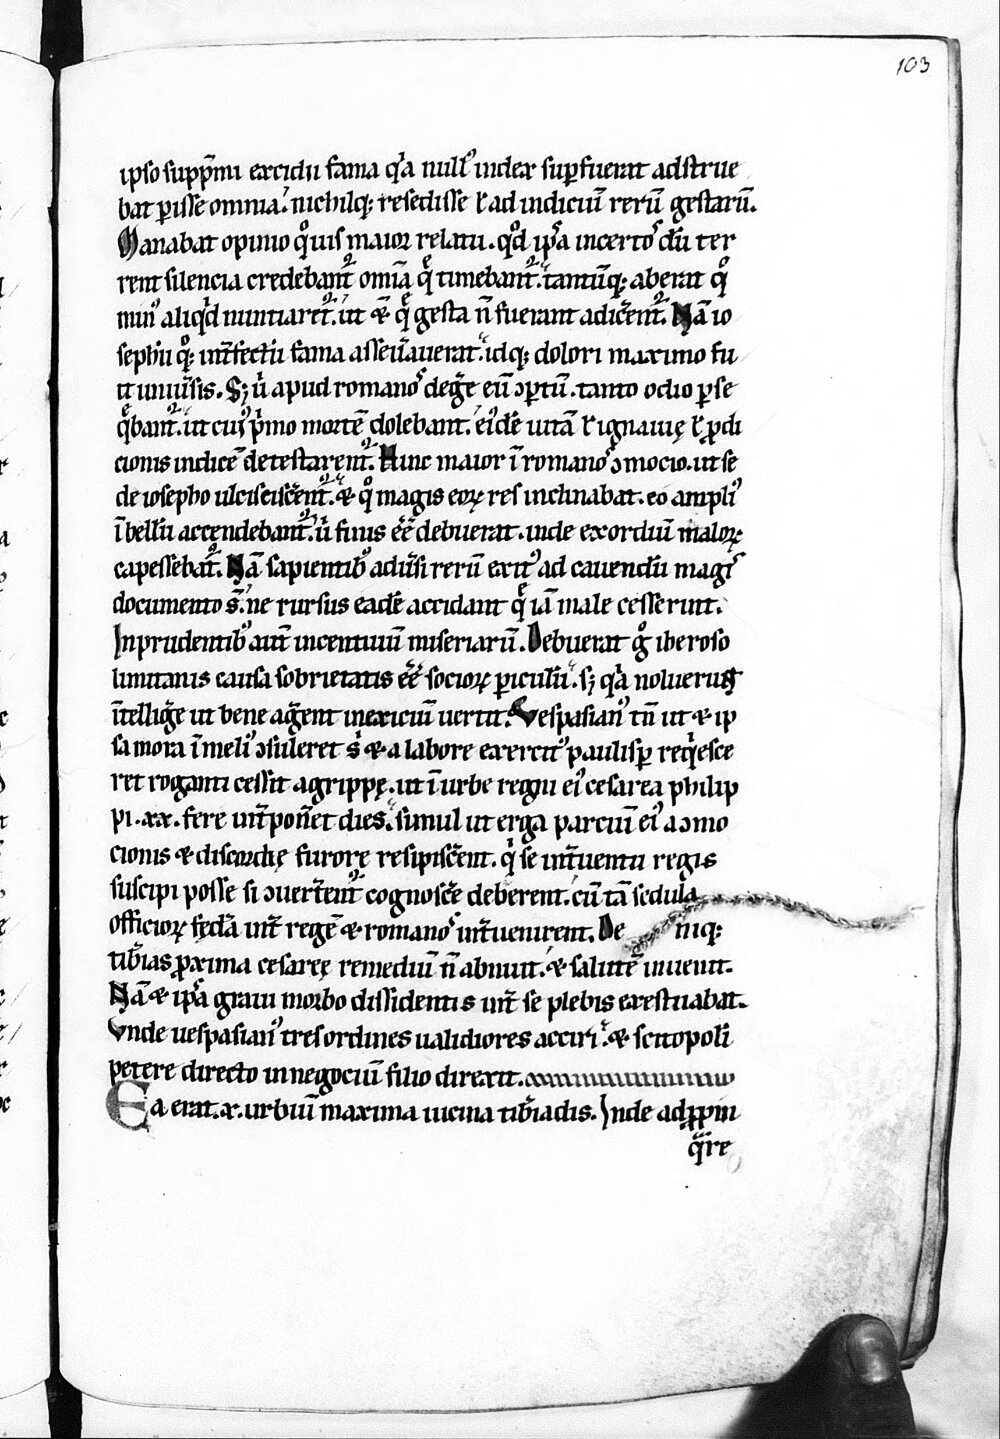 103
ipso supp̄mi excidii fama qͥa null᷒ index suꝑfuerat adstrue
bat ꝑisse omnia. nichilq; resedisse ł ad indiciū rerū gestarū.
Manabat opinio qͦuis maior relatu. qͦd ip̄a incertoꝰ dū ter
rent silencia credebant᷑ om̄ia q̄ timebant᷑. tantūq; aberat qͦ
min᷒ aliqͥd nuntiaret᷑. ut & q̄ gesta n̄ fuerant adic̄ent᷑. Nā io
sephū qͦ; int̄fectū fama asseu̅auerat. idq; dolori maximo fu
it uniu̅sis. Sꝫ u̇ apud romanoꝰ deḡe eū ↄꝑtū. tanto odio ꝑse
q̄bant᷑. ut cui᷒ pͥmo mortē dolebant. ei᷒dē uitā ł ignauię ł ꝓdi
cionis indicē detestarent᷑. Hinc maior ī romanoꝰ ↄmocio. ut se
de iosepho ulciscisc̄ent᷑. & qͦ magis eoꝝ res inclinabat. eo ampli᷒
ī bellū accendebant᷑. u̇ finis ēē debuerat. inde exordiū maloꝝ
capessebat᷑. Nā sapientib᷒ adu̅si rerū exit᷒ ad cauendū magiꝰ
documento s̄. ne rursus eadē accidant q̄ iā male cesserunt.
Inprudentib᷒ aut̄ incentiuū miseriarū. Debuerat gͦ iheroso
limitanis causa sobrietatis ēē socioꝝ ꝑiculū. sꝫ qͥa noluerunt
ītelliḡe ut bene aḡent inexiciū uertit. Vespasian᷒ tn̄ ut & ip
sa mora ī meli᷒ ↄsuleret sͥ & a labore exercit᷒ paulisꝑ reqͥesce
ret roganti cessit agrippę. ut ī urbe regni ei᷒ cesarea philip
pi .xx. fere int̄pon̄et dies. simul ut erga parciū ei᷒ a ↄmo
cionis & discordię furore resipisc̄ent. qͥ se int̄uentu regis
suscipi posse si ↄuert̄ent᷑ cognosc̄e deberent. cū tā sedula
officioꝝ fęd̄a int̄ regē & romanoꝰ int̄uenirent. De niq;
tib̄ias ꝓxima cesareę remediū n̄ abnuit. & salutē inuenit.
Nā & ip̄a graui morbo dissidentis int̄ se plebis exestuabat.
Vnde uespasian᷒ tres ordines ualidiores acciri. & scitopolī
petere directo in negociū filio direxit.
Ea erat .x. urbiū maxima uicina tib̄iadis. Inde adꝓpin
q̄re